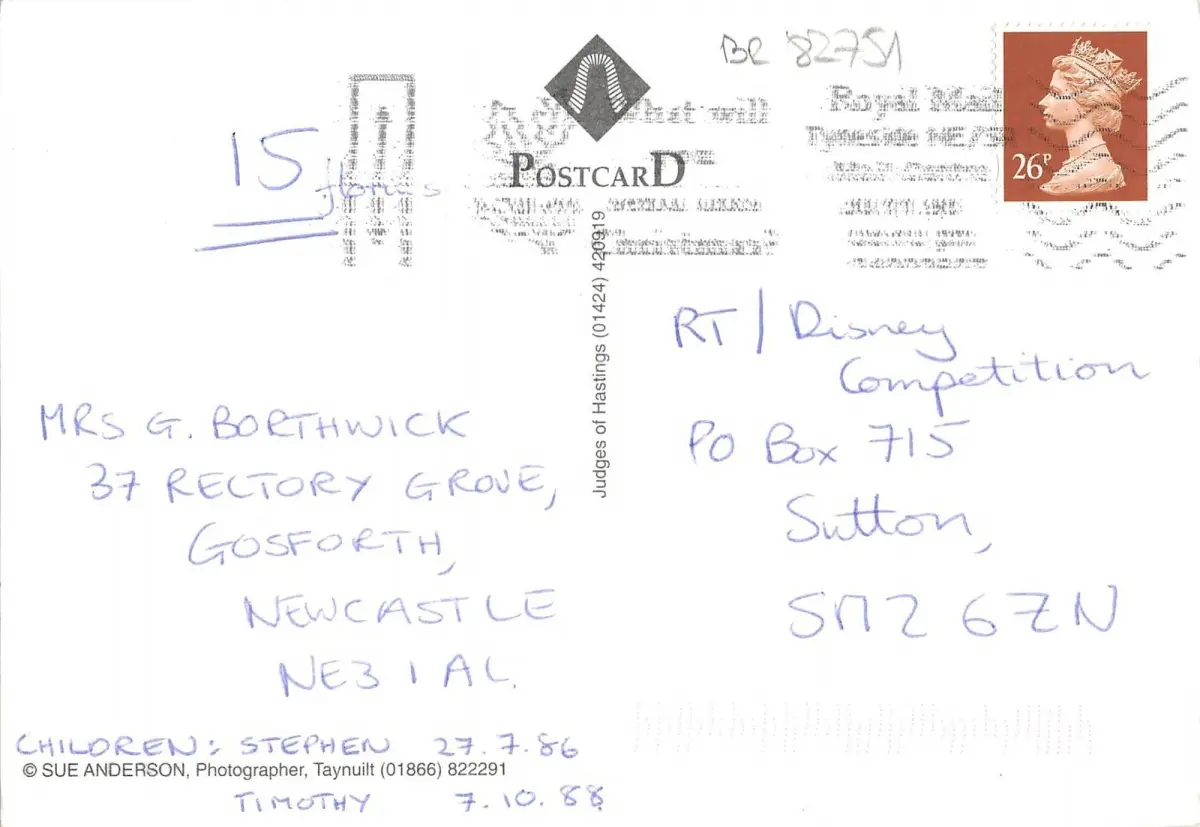 BR 82751
26P
Royal Mail
15
POSTCARD
Judges of Hastings (01424) 420919
RT / Disney
Competition
PO Box 715
Sutton,
SM2 6ZN
MRS G. BORTHWICK
37 RECTORY GROVE,
GOSFORTH,
NEWCASTLE
NE3 1AL.
CHILDREN: STEPHEN 27.7.86
© SUE ANDERSON, Photographer, Taynuilt (01866) 822291
TIMOTHY 7.10.88